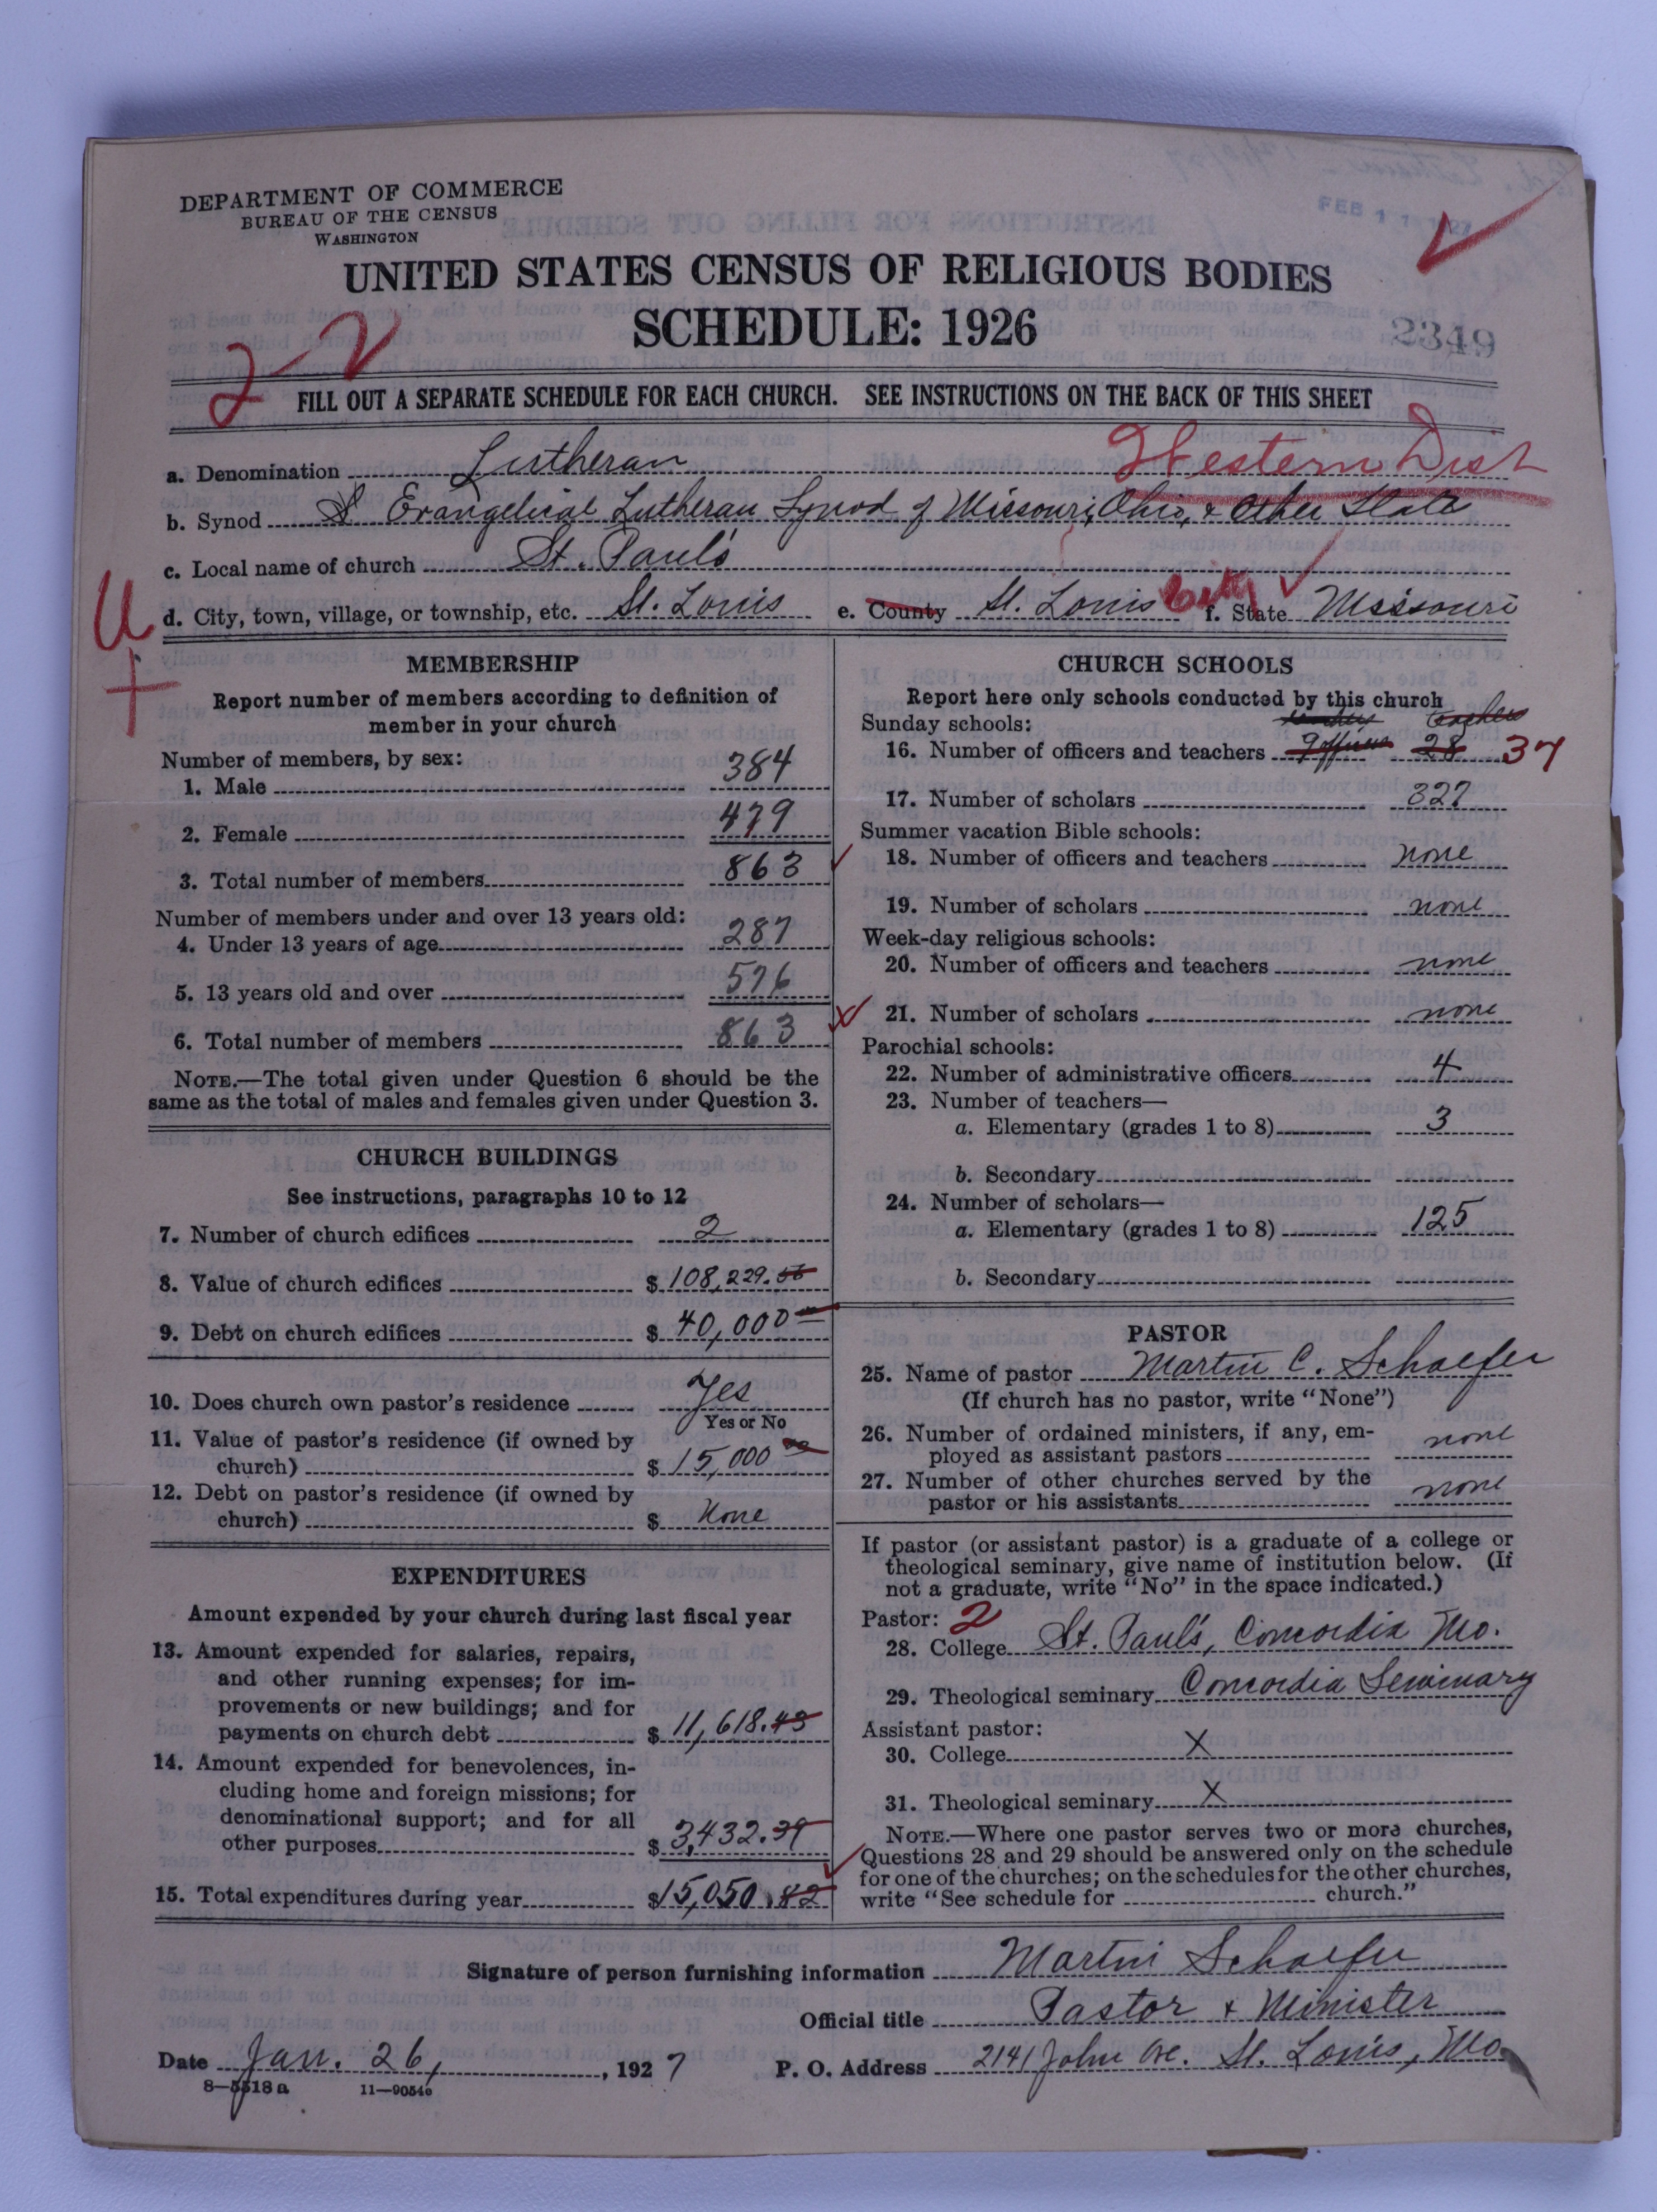 DEPARTMENT OF COMMERCE
BUREAU OF THE CENSUS
WASHINGTON
FEB 1 1 1927
UNITED STATES CENSUS OF RELIGIOUS BODIES
SCHEDULE: 1926
2349
2-2
FILL OUT A SEPARATE SCHEDULE FOR EACH CHURCH. SEE INSTRUCTIONS ON THE BACK OF THIS SHEET
Western Dist
a. Denomination Lutheran
b. Synod Evangelical Lutheran Synod of Missouri, Ohio, & Other State
c. Local name of church St. Paul's
U
d. City, town, village, or township, etc. St. Louis e. County St. Louis City f. State Missouri
MEMBERSHIP
Report number of members according to definition of
member in your church
Number of members, by sex:
1. Male 384
2. Female 479
3. Total number of members 863
Number of members under and over 13 years old:
4. Under 13 years of age 287
5. 13 years old and over 576
6. Total number of members 863
NOTE.—The total given under Question 6 should be the
same as the total of males and females given under Question 3.
CHURCH BUILDINGS
See instructions, paragraphs 10 to 12
7. Number of church edifices 2
8. Value of church edifices $108,229.56
9. Debt on church edifices $ 40,000
10. Does church own pastor's residence Yes
Yes or No
11. Value of pastor's residence (if owned by
church) $ 15,000
12. Debt on pastor's residence (if owned by
church) $ None
EXPENDITURES
Amount expended by your church during last fiscal year
13. Amount expended for salaries, repairs,
and other running expenses; for im-
provements or new buildings; and for
payments on church debt $ 11,618.43
14. Amount expended for benevolences, in-
cluding home and foreign missions; for
denominational support; and for all
other purposes $ 3,432.39
15. Total expenditures during year $15,050.82
CHURCH SCHOOLS
Report here only schools conducted by this church
Sunday schools: teachers
16. Number of officers and teachers 9 officers 28 37
17. Number of scholars 327
Summer vacation Bible schools:
18. Number of officers and teachers none
19. Number of scholars none
Week-day religious schools:
20. Number of officers and teachers none
21. Number of scholars none
Parochial schools:
22. Number of administrative officers 4
23. Number of teachers—
a. Elementary (grades 1 to 8) 3
b. Secondary
24. Number of scholars—
a. Elementary (grades 1 to 8) 125
b. Secondary
PASTOR
25. Name of pastor Martin C. Schaefer
(If church has no pastor, write "None")
26. Number of ordained ministers, if any, em-
ployed as assistant pastors none
27. Number of other churches served by the
pastor or his assistants none
If pastor (or assistant pastor) is a graduate of a college or
theological seminary, give name of institution below. (If
not a graduate, write "No" in the space indicated.)
Pastor: 2
28. College St. Paul's, Concordia Mo.
29. Theological seminary Concordia Seminary
Assistant pastor:
30. College X
31. Theological seminary X
NOTE.—Where one pastor serves two or more churches,
Questions 28 and 29 should be answered only on the schedule
for one of the churches; on the schedules for the other churches,
write "See schedule for church."
Signature of person furnishing information Martin Schaefer
Official title Pastor & Minister
Date Jan. 26, 1927 P. O. Address 2141 John Ave. St. Louis, Mo.
8—5518 a 11—9054